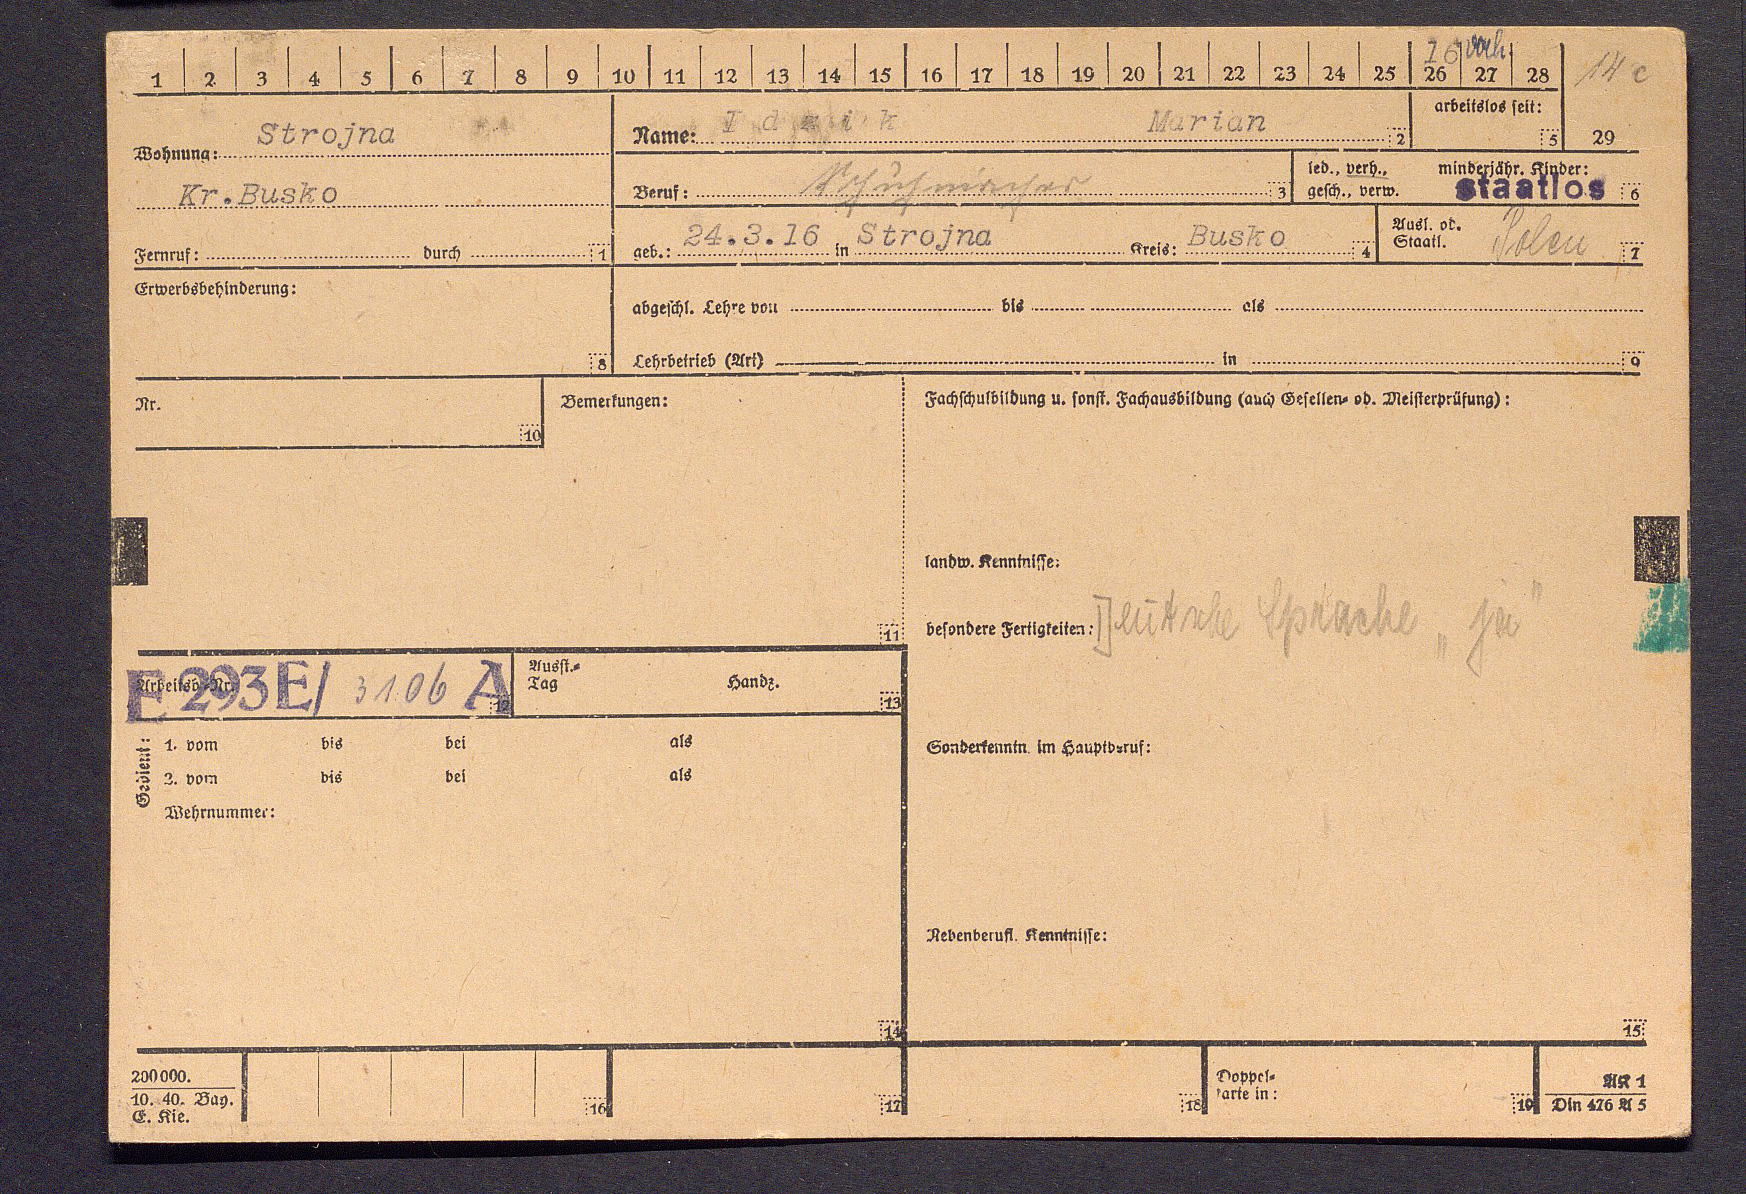 1 2 3 4 5 6 7 8 9 10 11 12 13 14 15 16 17 18 19 20 21 22 23 24 25 26 27 28
16 verh. 14 c
arbeitslos seit: 5 29
Wohnung: Strojna
Kr.Busko
Fernruf: durch 1
Name: Idzik Marian 2
Beruf: Schuhmacher 3
led., verh., gesch., verw.
minderjähr. Kinder: 6
staatlos
geb.: 24.3.16 in Strojna Kreis: Busko 4
Ausl. od. Staatl. Polen 7
Erwerbsbehinderung: 8
abgeschl. Lehre von bis als
Lehrbetrieb (Art) in 9
Nr. 10
Bemerkungen: 11
Fachschulbildung u. sonst. Fachausbildung (auch Gesellen- od. Meisterprüfung):
landw. Kenntnisse:
besondere Fertigkeiten: Deutsche Sprache „ja"
Arbeitsb.-Nr. 12
E 293E/ 3106 A
Ausst.-Tag Handz. 13
Gedient:
1. vom bis bei als
2. vom bis bei als
Wehrnummer:
14
Sonderkenntn. im Hauptberuf:
Nebenberufl. Kenntnisse:
15
200000.
10. 40. Bay.
E. Kie.
16 17 18
Doppel-
karte in: 19
AK 1
Din 476 A 5